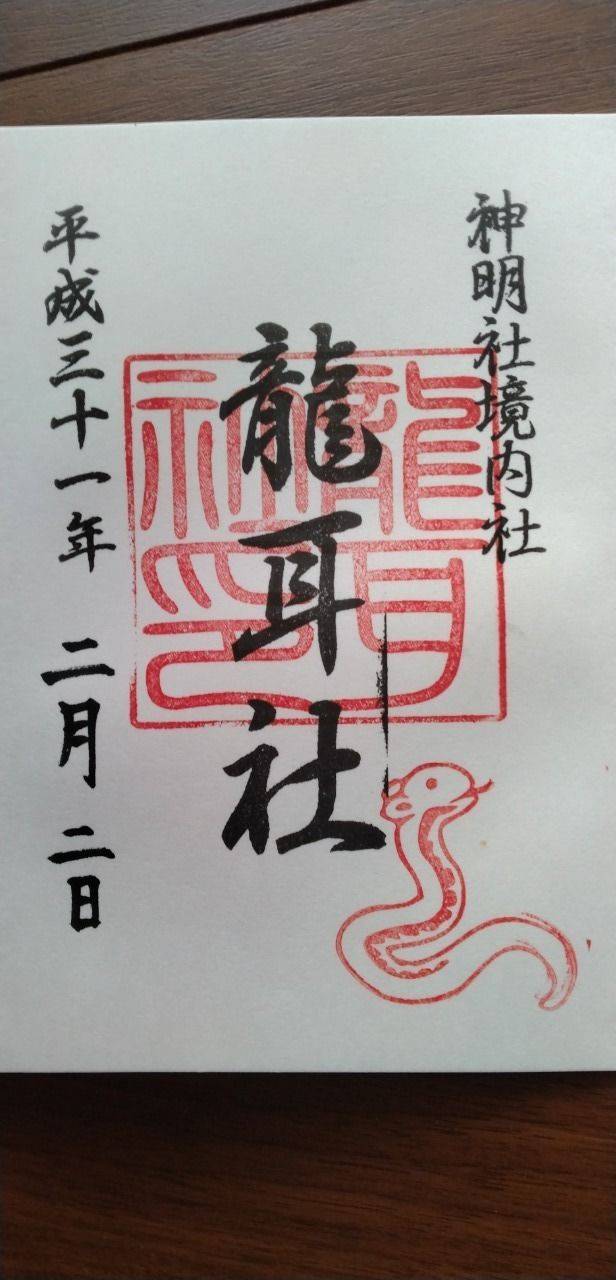 神明社境内社
龍耳社
平成三十一年 二月 二日
龍耳社印